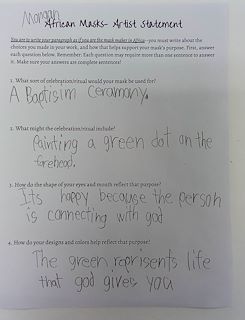 Morgan
African Masks- Artist Statement
You are to write your paragraph as if you are the mask maker in Africa--you must write about the
choices you made in your work, and how that helps support your mask's purpose. First, answer
each question below. Remember: Each question may require more than one sentence to answer
it. Make sure your answers are complete sentences!
1. What sort of celebration/ritual would your mask be used for?
A Baptisim Ceramony.
2. What might the celebration/ritual include?
Painting a green dot on the
forehead.
3. How do the shape of your eyes and mouth reflect that purpose?
Its happy because the person
is connecting with god
4. How do your designs and colors help reflect that purpose?
The green reprisents life
that god gives you